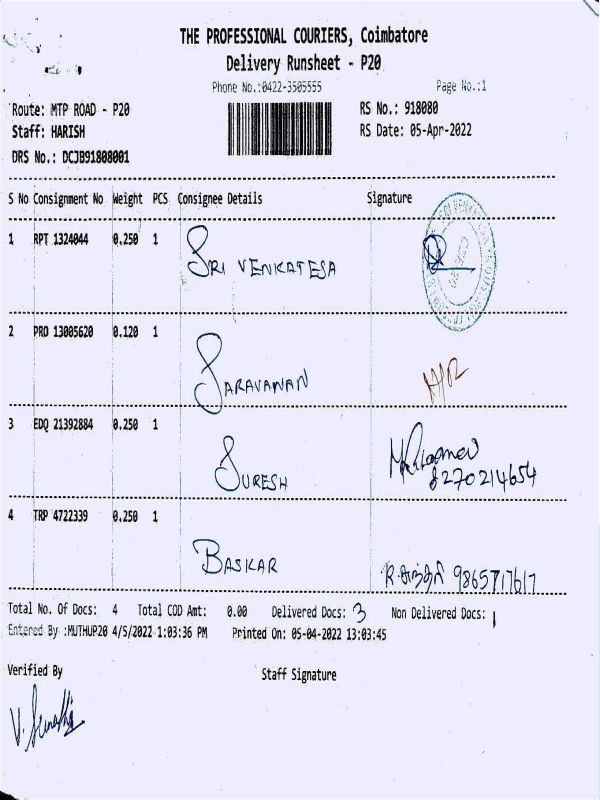 THE PROFESSIONAL COURIERS, Coimbatore
Delivery Runsheet - P20
Phone No.:0422-3505555 Page No.:1
Route: MTP ROAD - P20 RS No.: 918080
Staff: HARISH RS Date: 05-Apr-2022
DRS No.: DCJB91808001
S No Consignment No Weight PCS Consignee Details Signature
1 RPT 1324044 0.250 1 SRI VENKATESA
2 PRO 13005620 0.120 1 SARAVANAN
3 EDQ 21392884 0.250 1 SURESH
8270214654
4 TRP 4722339 0.250 1 BASKAR R. 9865717617
Total No. Of Docs: 4 Total COD Amt: 0.00 Delivered Docs: 3 Non Delivered Docs: 1
Entered By :MUTHUP20 4/5/2022 1:03:36 PM Printed On: 05-04-2022 13:03:45
Verified By Staff Signature